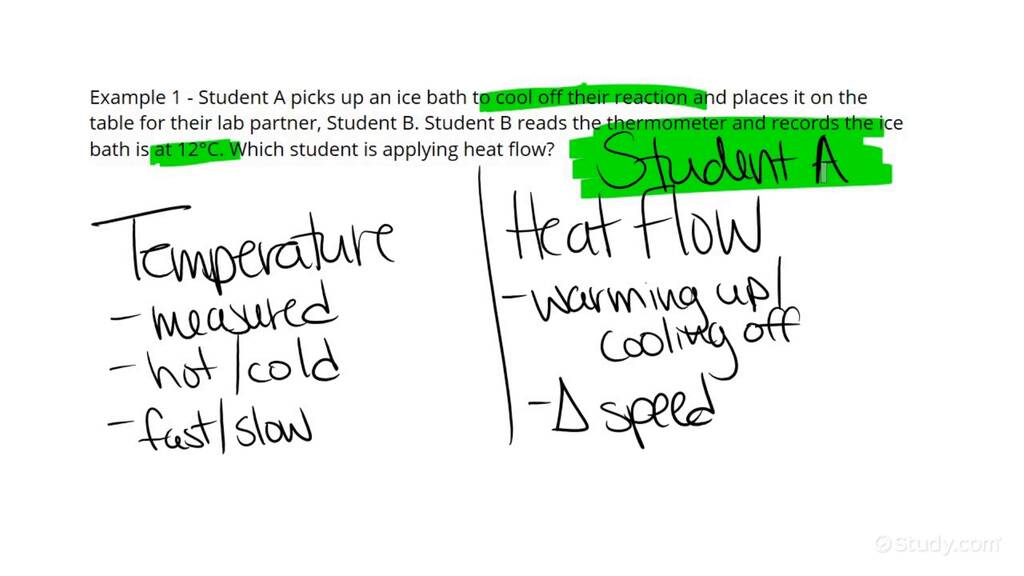 Example 1 - Student A picks up an ice bath to cool off their reaction and places it on the
table for their lab partner, Student B. Student B reads the thermometer and records the ice
bath is at 12°C. Which student is applying heat flow?
Student A
Temperature
- measured
- hot/cold
- fast/slow
Heat Flow
- warming up/
cooling off
- Δ speed
Study.com